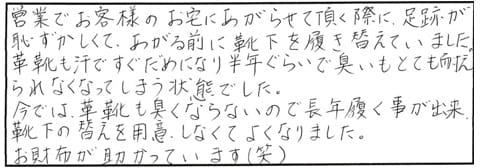 営業でお客様のお宅にあがらせて頂く際に、足跡が
恥ずかしくて、あがる前に靴下を履き替えていました。
革靴も汗ですぐだめになり半年ぐらいで臭いもとても耐え
られなくなってしまう状態でした。
今では、革靴も臭くならないので長年履く事が出来、
靴下の替えを用意しなくてよくなりました。
お財布が助かっています(笑)